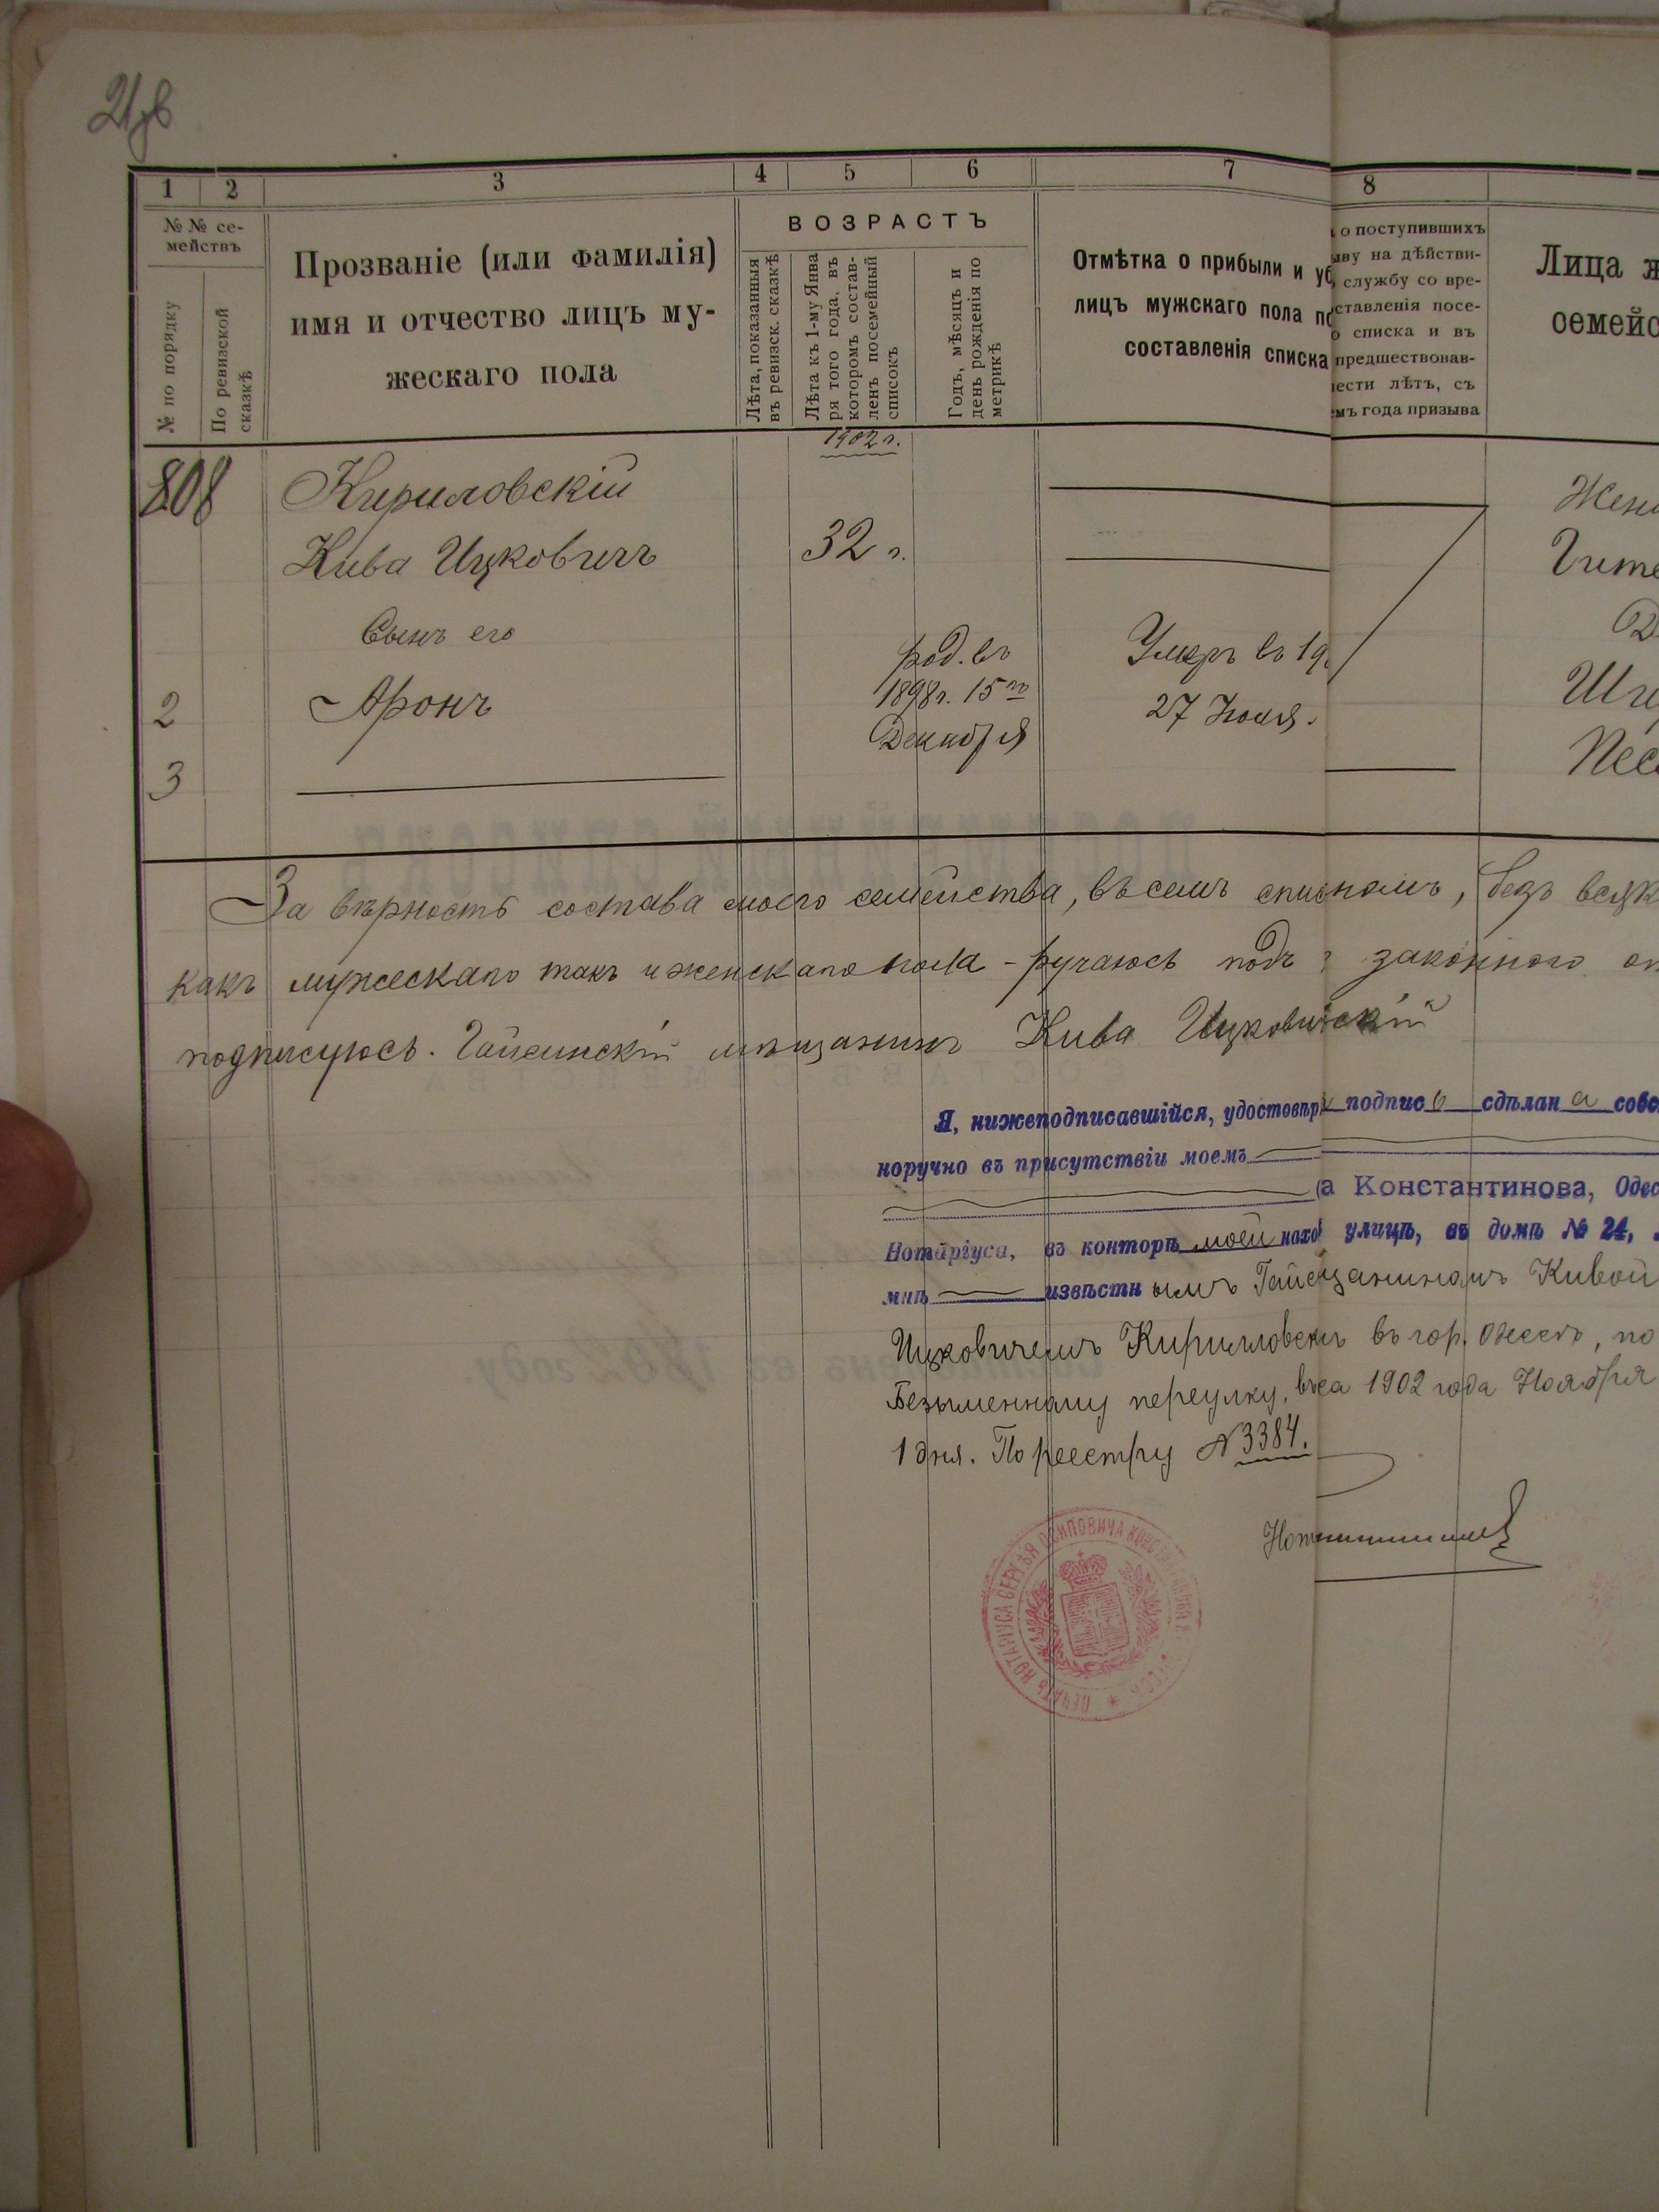 1 2 3 4 5 6 7 8
№№ се-
мействъ
№ по порядку
По ревизской
сказкѣ
Прозваніе (или фамилія)
имя и отчество лицъ му-
жескаго пола
ВОЗРАСТЪ
Лѣта, показанныя
въ ревизск. сказкѣ
Лѣта къ 1-му Янва
ря того года, въ
которомъ состав-
ленъ посемейный
списокъ
Годъ, мѣсяцъ и
день рожденія по
метрикѣ
Отмѣтка о прибыли и уб
лицъ мужскаго пола по
составленія списка
о поступившихъ
ыву на дѣйстви-
службу со вре-
ставленія посе-
о списка и въ
предшествовав-
ести лѣтъ, съ
емъ года призыва
Лица ж
семейс
1902 г.
808 Кириловскій Жена
Кива Ицковичъ 32 г. Гите
Сынъ его род. въ Умеръ въ 19
2 Аронъ 1898 г. 15го 27 Іюля.
Декабря
3
За вѣрность состава моего семейства, въ семъ списномъ, безъ всяк
какъ мужескаго такъ и женскаго пола - ручаюсь подъ законного
подписуюсь. Гайсинскій мѣщанинъ Кива
Я, нижеподписавшійся, удостовѣр подпись сдѣлана собс
норучно въ присутствіи моемъ
а Константинова, Одес
Нотаріуса, въ конторѣ моей нахо улицѣ, въ домѣ № 24,
мнѣ извѣстнымъ Гайс щаниномъ Кивой
Ицковичемъ Кирилловски въ гор. Одессѣ, по
Безыменному переулку, 1902 года Ноября
1 дня. По реестру № 3384.
ПЕЧАТЬ НОТАРІУСА СЕРГѢЯ ОСИПОВИЧА КОНСТАНТИНОВА